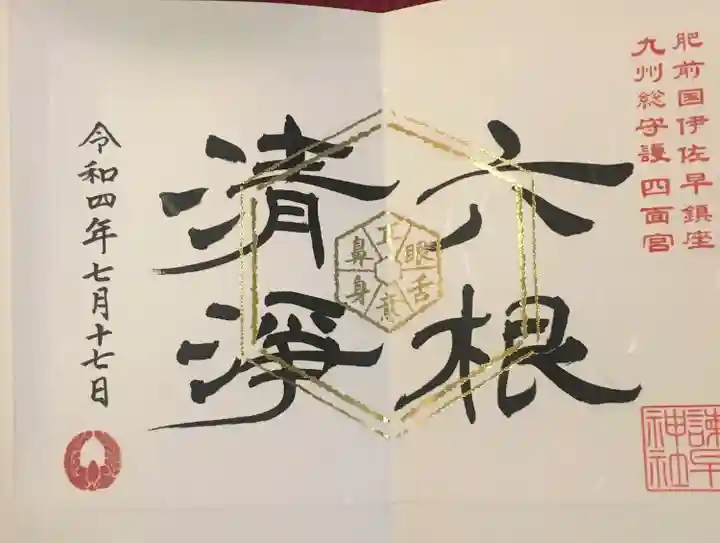 肥前国伊佐早鎮座
九州総守護四面宮
六根
清浄
耳
眼
舌
意
身
鼻
諫早
神社
令和四年七月十七日